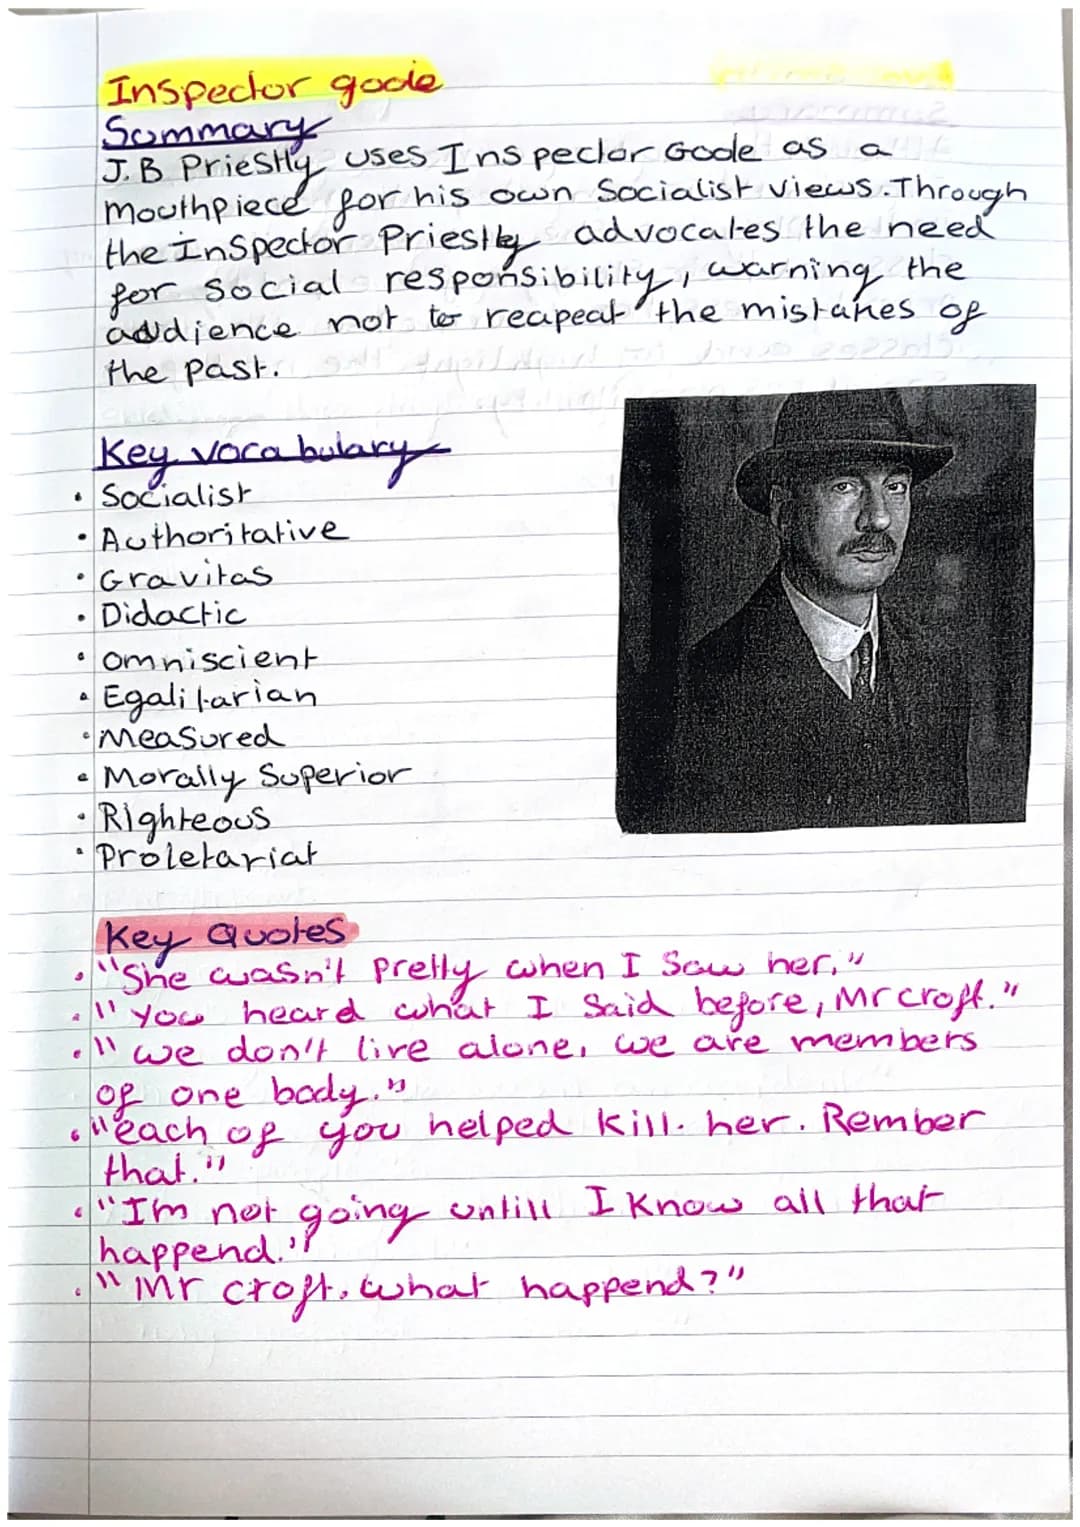 Inspector goole
Summary
J.B Priestly uses Inspector Goole as a
mouthpiece for his own Socialist views. Through
the Inspector Priestly advocates the need
for social responsibility, warning the
audience not to reapeat the mistakes of
the past.
Key vocabulary
• Socialist
• Authoritative
• Gravitas
• Didactic
• omniscient
• Egalitarian
• Measured
• Morally Superior
• Righteous
• Proletariat
Key Quotes
• "She wasn't pretty when I saw her."
• "You heard what I said before, Mr croft."
• "we don't live alone, we are members
of one body."
• "each of you helped kill her. Rember
that."
• "I'm not going untill I know all that
happend."
• "Mr croft, what happend?"